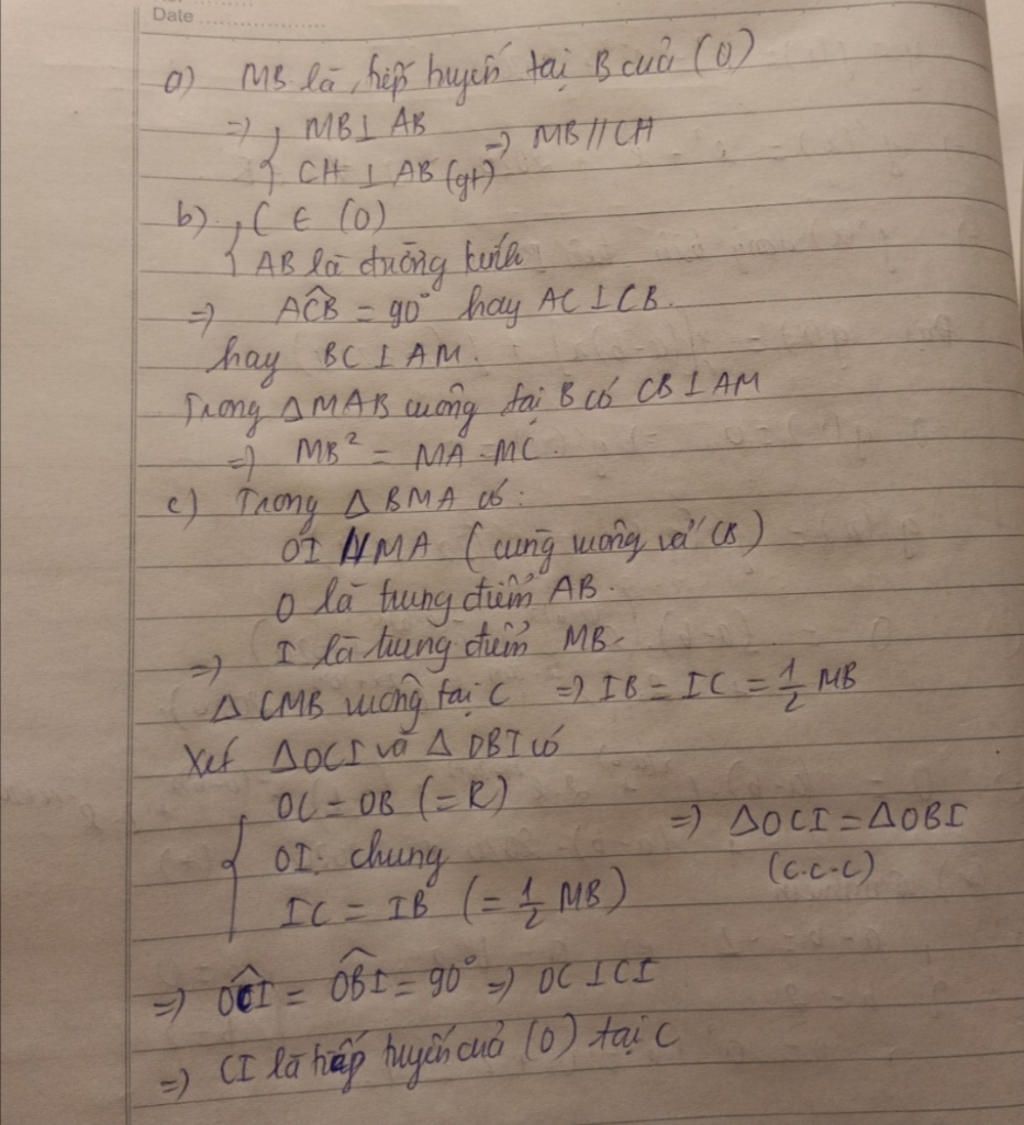 Date
a) MB là tiếp tuyến tại B của (O)
=> { MB ⊥ AB
CH ⊥ AB (gt) => MB // CH
b) { C ∈ (O)
AB là đường kính
=> ACB̂ = 90° hay AC ⊥ CB.
hay BC ⊥ AM.
Trong △MAB vuông tại B có CB ⊥ AM
=> MB² = MA . MC.
c) Trong △BMA có:
OI // MA (cùng vuông với CB)
O là trung điểm AB.
=> I là trung điểm MB.
△CMB vuông tại C => IB = IC = 1/2 MB
Xét △OCI và △OBI có
{ OC = OB (= R)
OI: chung
IC = IB (= 1/2 MB)
=> △OCI = △OBI
(c.c.c)
=> OCÎ = OBÎ = 90° => OC ⊥ CI
=> CI là tiếp tuyến của (O) tại C